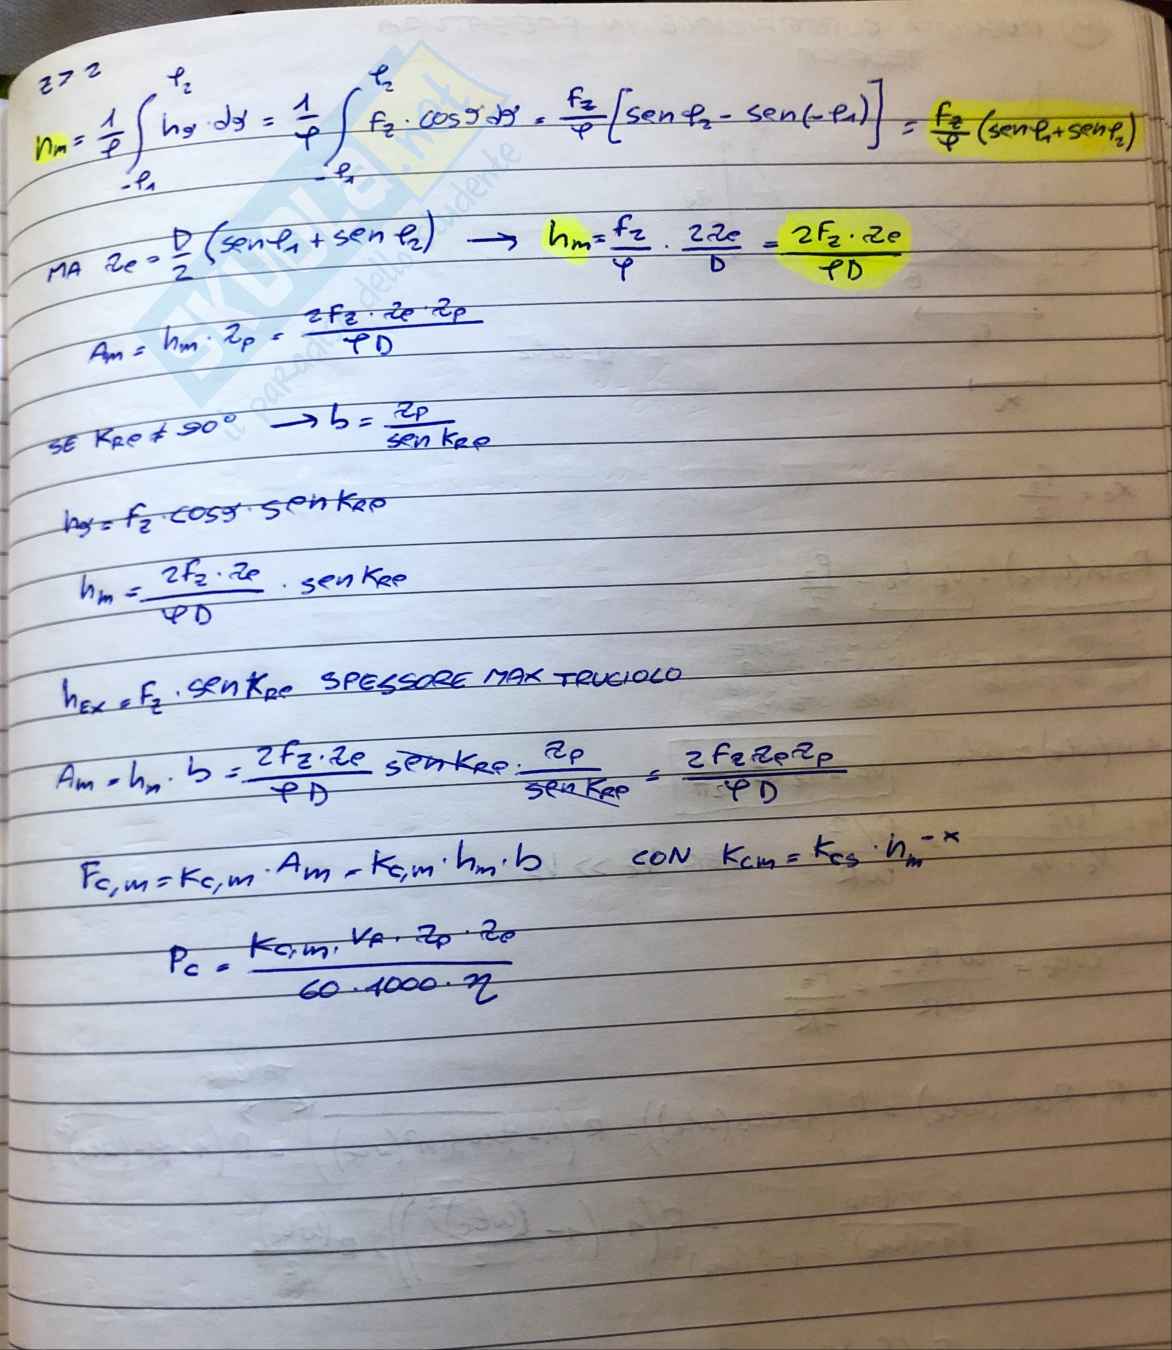 z > 2
hm = 1/φ ∫_{-φ1}^{φ2} hϑ · dϑ = 1/φ ∫_{-φ1}^{φ2} fz · cosϑ dϑ = fz/φ [sen φ2 - sen(-φ1)] = fz/φ (sen φ1 + sen φ2)
MA ae = D/2 (sen φ1 + sen φ2) → hm = fz/φ · 2ae/D = 2fz · ae/φD
Am = hm · ap = 2fz · ae · ap/φD
SE KRe ≠ 90° → b = ap/sen KRe
hϑ = fz · cosϑ · sen KRe
hm = 2fz · ae/φD · sen KRe
hEX = fz · sen KRe SPESSORE MAX TRUCIOLO
Am = hm · b = 2fz · ae/φD sen KRe · ap/sen KRe = 2fz ae ap/φD
Fc,m = Kc,m · Am = Kc,m · hm · b CON Kcm = Kcs · hm^-x
Pc = Kc,m · VF · ap · ae/60 · 1000 · η
SKUOLA.net
il paradiso dello studente